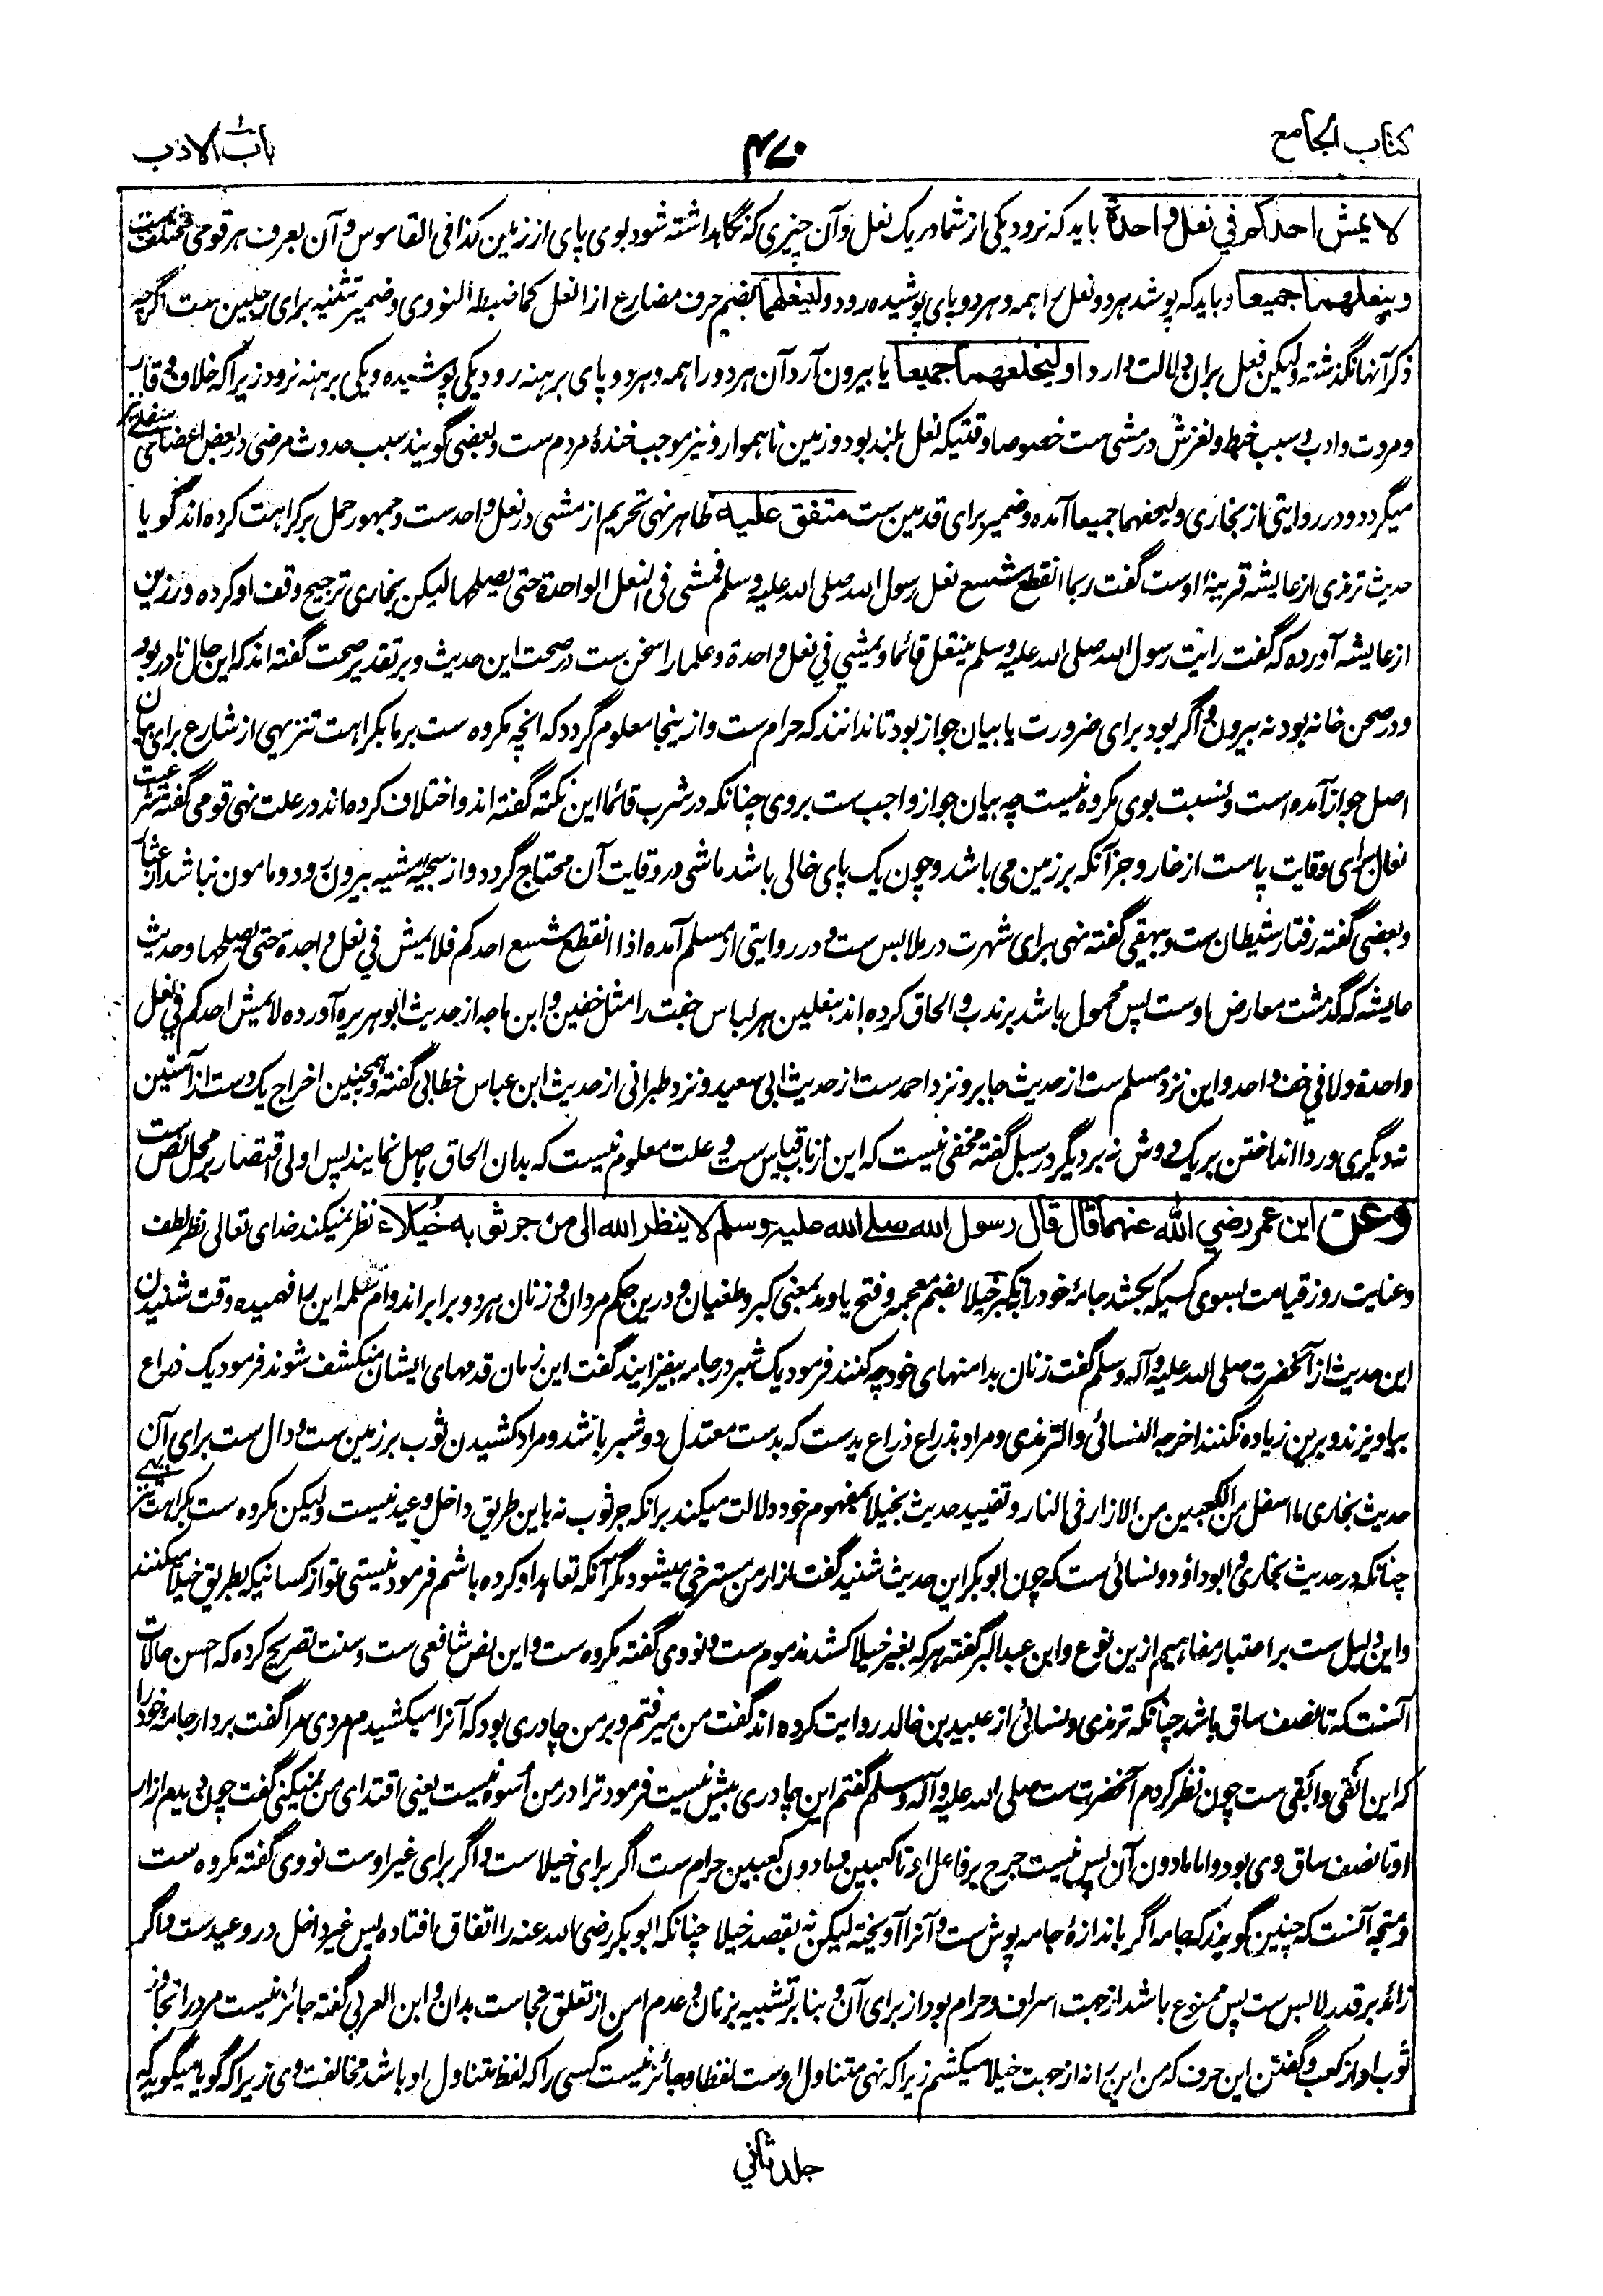 کتاب الجامع
۴۷۰
باب الادب
لا یمش احدکم في نعل واحدة باید که نرود یکی از شما در یک نعل و آن چیزی که نگاهداشته شود بوی پای از زمین کذا فی القاموس و آن بعرف هر قومی مختلف ست
وینعلهما جمیعا و باید که پوشد هر دو نعل را همه و هر دو پای پوشیده رود ولینعلهما بضم حرف مضارع از انعل کما ضبطه النووی وضمیر تثنیه برای رجلین ست اگرچه
ذکر آنها نگذشته ولیکن فعل بران دلالت دارد اولیخلعهما جمیعا یا بیرون آرد آن هر دو را همه و هر دو پای برهنه رود یکی پوشیده و یکی برهنه نرود زیرا که خلاف وقار
ومروت وادب و سبب خبط ولغزش در مشی ست خصوصا وقتیکه نعل بلند بود و زمین ناهموار و نیز موجب خندۀ مردم ست وبعضی گویند سبب حدوث مرضی در بعض اعضای سفلی نیز
میگردد ودر روایتی از بخاری ولیحفهما جمیعا آمده وضمیر برای قدمین ست متفق علیه ظاهر نهی تحریم از مشی در نعل واحد ست وجمهور حمل بر کراهت کرده اند گویا
حدیث ترمذی از عایشه قرینۀ اوست گفت ربما انقطع شسع نعل رسول الله صلی الله علیه وسلم فمشی فی النعل الواحدة حتی یصلحها لیکن بخاری ترجیح وقف او کرده ورزین
از عایشه آورده که گفت رایت رسول الله صلی الله علیه وسلم ینتعل قائما ویمشي في نعل واحدة وعلما را سخن ست در صحت این حدیث و بر تقدیر صحت گفته اند که این حال نادر بود
ودر صحن خانه بود نه بیرون و اگر بود برای ضرورت یا بیان جواز بود تا ندانند که حرام ست و از ینجا معلوم گردد که انچه مکروه ست بر ما بکراهت تنزیهی از شارع برای بیان
اصل جواز آمده است و نسبت بوی مکروه نیست چه بیان جواز واجب ست بروی چنانکه در شرب قائما این نکته گفته اند و اختلاف کرده اند در علت نهی قومی گفته شرعیت
نعال برای وقایت پاست از خار و جز آنکه بر زمین می باشد وچون یک پای خالی باشد ماشی در وقایت آن محتاج گردد واز سجیۀ مشیه بیرون رود ومامون نباشد از عثار
وبعضی گفته رفتار شیطان ست و بیهقی گفته نهی برای شهرت در ملابس ست و در روایتی از مسلم آمده اذا انقطع شسع احدکم فلا یمش في نعل واحدة حتی یصلحها وحدیث
عایشه که گذشت معارض اوست پس محمول باشد بر ندب و الحاق کرده اند بنعلین هر لباس جفت را مثل خفین و ابن ماجه از حدیث ابو هریره آورده لا یمش احدکم في نعل
واحدة ولا في خف واحد و این نزد مسلم ست از حدیث جابر ونزد احمد ست از حدیث ابی سعید ونزد طبرانی از حدیث ابن عباس خطابی گفته وهمچنین اخراج یک دست از آستین
نه دیگری وردا انداختن بر یک دوش نه بر دیگر در سبل گفته مخفی نیست که این از باب قیاس ست و علت معلوم نیست که بدان الحاق باصل نمایند پس اولی اقتصار بر محل نص ست
وعن ابن عمر رضي الله عنهما قال قال رسول الله صلے الله علیه وسلم لا ینظر الله الی من جر ثوبه خیلاء نظر نمیکند خدای تعالی نظر لطف
وعنایت روز قیامت بسوی کسیکه بکشد جامۀ خود را بتکبر خیلا بضم معجمه وفتح یا ومد بمعنی کبر وطغیان ودرین حکم مردان و زنان هر دو برابر اند وام سلمه این را فهمیده وقت شنیدن
این حدیث از آنحضرت صلی الله علیه وآله وسلم گفت زنان بدامنهای خود چه کنند فرمود یک شبر در جامه بیفزایند گفت این زمان قدمهای ایشان منکشف شوند فرمود یک ذراع
بیاویزند وبرین زیاده نکنند اخرجه النسائی والترمذی ومراد بذراع ذراع ید ست که بدست معتدل دو شبر باشد ومراد کشیدن ثوب بر زمین ست ودال ست برای آن
حدیث بخاری ما اسفل من الکعبین من الازار فی النار وتقیید حدیث بخیلا بمفهوم خود دلالت میکند برانکه جر ثوب نه باین طریق داخل وعید نیست ولیکن مکروه ست بکراهت تنزیهی
چنانکه در حدیث بخاری و ابوداؤد ونسائی ست که چون ابوبکر این حدیث شنید گفت ازار من مسترخی میشود مگر آنکه تعاهد او کرده باشم فرمود نیستی تو از کسانیکه بطریق خیلا میکنند
واین دلیل ست بر اعتبار مفاهیم ازین نوع وابن عبد البر گفته هر که بغیر خیلا کشد مذموم ست ونووی گفته مکروه ست و این نص شافعی ست وسنت تصریح کرده که احسن حالات
آنست که تا نصف ساق باشد چنانکه ترمذی ونسائی از عبید بن خالد روایت کرده اند گفت من میرفتم وبر من چادری بود که آنرا میکشیدم مردی مرا گفت بردار جامۀ خود را
که این اتقی وابقی ست چون نظر کردم آنحضرت ست صلی الله علیه وآله وسلم گفتم این چادری بیش نیست فرمود ترا در من اسوه نیست یعنی اقتدای من نمیکنی گفت چون دیدم ازار
او تا نصف ساق وی بود واما مادون آن پس نیست حرج بر فاعل او تا کعبین ومادون کعبین حرام ست اگر برای خیلاست و اگر برای غیر اوست نووی گفته مکروه ست
ومتجه آنست که چنین گویند که جامه اگر باندازۀ جامه پوش ست و آنرا آویخته لیکن نه بقصد خیلا چنانکه ابوبکر رضی الله عنه را اتفاق افتاده پس غیر داخل در وعید ست و اگر
زائد بر قدر لابس ست پس ممنوع باشد از جهت اسراف وحرام بود از برای آن و بنابر تشبیه بزنان و عدم امن از تعلق نجاست بدان و ابن العربی گفته جائز نیست مرد را تجاوز
ثوب او از کعب و گفتن این حرف که من این را نه از جهت خیلا میکشم زیرا که نهی متناول اوست لفظا وجائز نیست کسی را که لفظ متناول او باشد مخالفت وی زیرا که گویا میگوید که
جلد ثاني